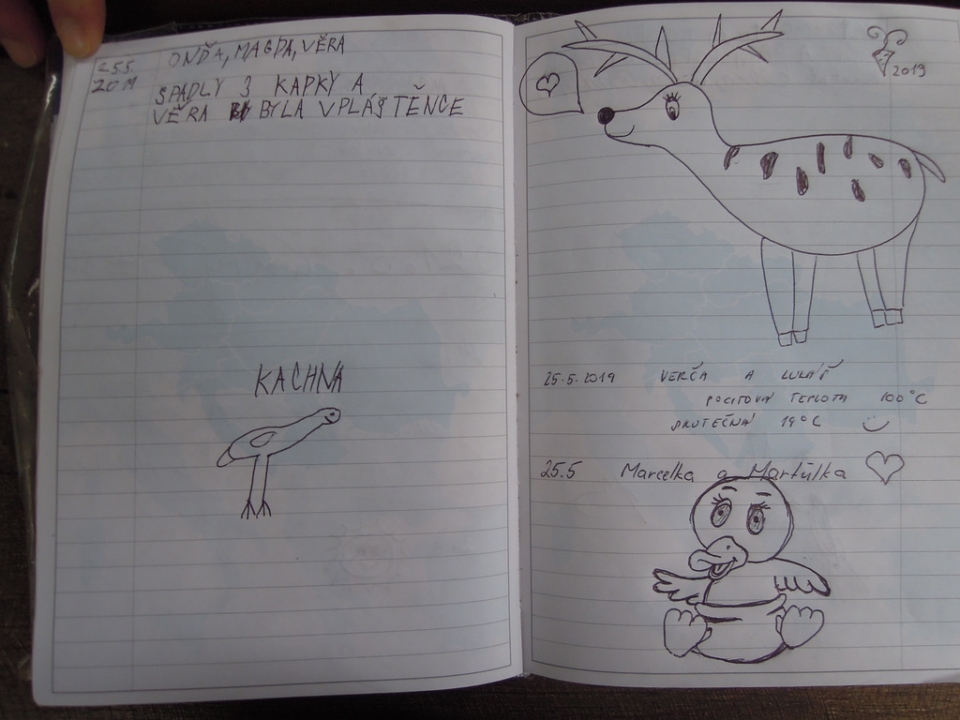 25.5
2019
ONĎA, MAGDA, VĚRA
SPADLY 3 KAPKY A
VĚRA BYLA V PLÁŠTĚNCE
KACHNA
2019
25.5.2019 VERČA A LUKÁŠ
POCITOVÁ TEPLOTA 100°C
SKUTEČNÁ 19°C
25.5 Marcelka a Martülka